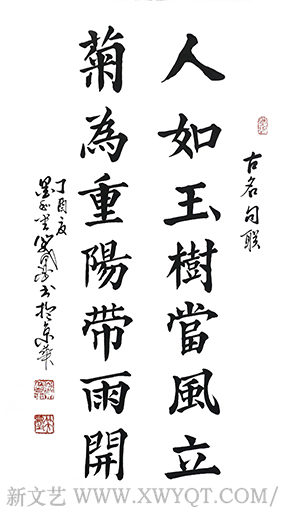 古名句联
人如玉樹當風立
菊為重陽帶雨開
丁酉夏
书於京華
新文艺 WWW.XWYQT.COM/